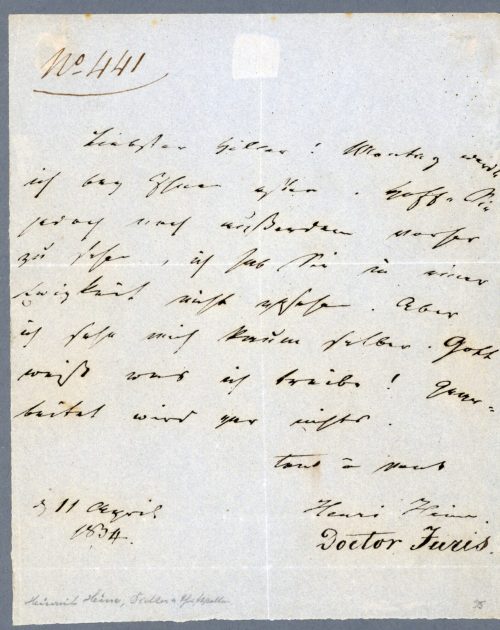 No 441
Liebster Hiller! Montag werde
ich bey Ihnen essen. Hoffe Sie
jedoch noch außerdem vorher
zu sehen, ich hab Sie in einer
Ewigkeit nicht gesehen. Aber
ich sehe mich kaum selber. Gott
weiß was ich treibe! Gear=
beitet wird gar nichts.
tout à vous
11 April
1834.
Henri Heine.
Doctor Juris.
Heinrich Heine,